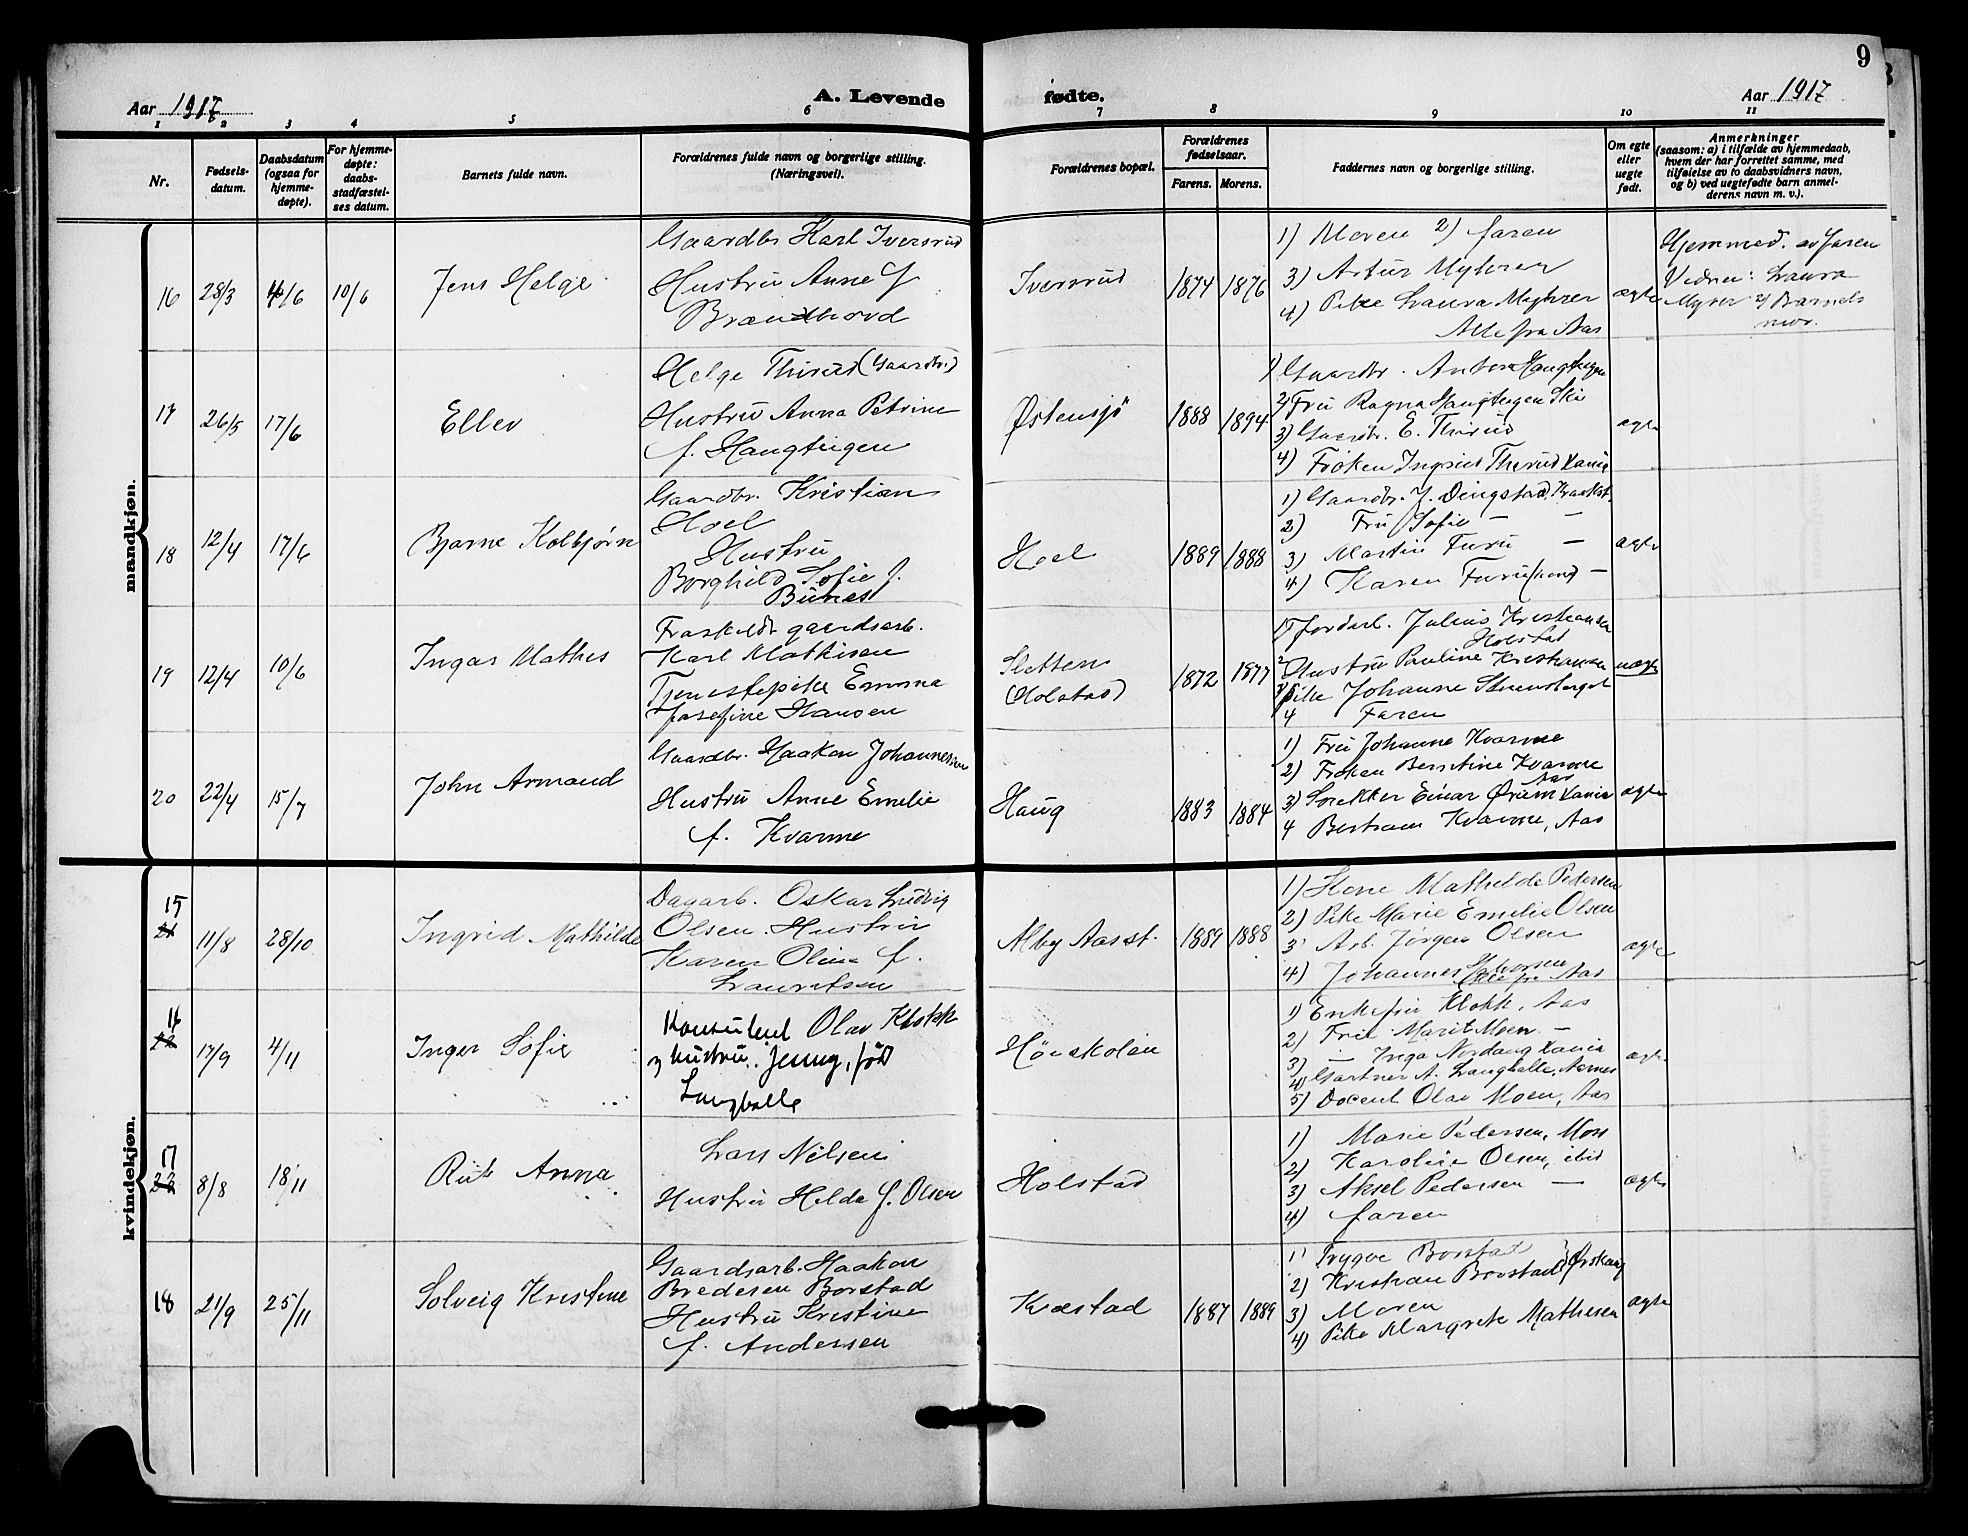 9
Aar 1917
A. Levende
fødte.
Aar 1917
1 2 3 4 5 6 7 8 9 10 11
Nr.
Fødsels-
datum.
Daabsdatum
(ogsaa for
hjemme-
døpte).
For hjemme-
døpte:
daabs-
stadfæstel-
ses datum.
Barnets fulde navn.
Forældrenes fulde navn og borgerlige stilling.
(Næringsvei).
Forældrenes bopæl.
Forældrenes
fødselsaar.
Farens. Morens.
Faddernes navn og borgerlige stilling.
Om egte
eller
uegte
født.
Anmerkninger
(saasom: a) i tilfælde av hjemmedaab,
hvem der har forrettet samme, med
tilføielse av to daabsvidners navn,
og b) ved uegtefødte barn anmel-
derens navn m. v.).
mandkjøn.
16 28/3 4/6 10/6 Jens Helge
Gaardbr Karl Iversrud
Hustru Anne f
Brændhovd
Iversrud 1874 1876
1) Moren 2) faren
3) Artur Myhrer
4) Pike Laura Myhrer
Alle fra Aas
ægte
Hjemmed. av faren
Vidner: Laura
Myrer 2) Barnets
mor.
17 26/5 17/6 Ellev
Helge Thirud (Gaardbr.)
Hustru Anna Petrine
f. Haugteigen
Østensjø 1888 1894
1) Gaardbr. Anton Haugteigen
2) Fru Ragna Haugteigen Ski
3) Gaardbr. E. Thirud
4) Frøken Ingrid Thirud Kania
ægte
18 12/4 17/6 Bjarne Kolbjørn
Gaardbr. Kristian
Hoel
Hustru
Borghild Sofie f.
Bunes
Hoel 1889 1888
1) Gaardbr. J. Dingstad, Kraakst.
2) Fru Sofie — —
3) Martin Furu —
4) Karen Furu —
ægte
19 12/4 10/6 Ingar Mathis
Fraskildt gaardsarb.
Karl Mathisen
Tjenestepike Emma
Josefine Hansen
Sletten
(Holstad)
1872 1877
1) Jordarb. Julius Kristiansen
Holstad
2 Hustru Pauline Kristiansen
3) Pike Johanne
4 Faren
uægte
20 22/4 15/7 John Armand
Gaardbr. Haakon Johannessen
Hustru Anne Emelie
f. Kvarme
Haug 1883 1884
1) Fru Johanne Kvarme
2) Frøken Berntine Kvarme
Aas
3) Snekker Einar Ørum Kania
4 Bertram Kvarme, Aas
ægte
kvindekjøn.
15
21 11/8 28/10 Ingrid Mathilde
Dagarb. Oskar Ludvig
Olsen. Hustru
Karen Oline f.
Lauritsen
Alby Aas st. 1889 1888
1) Kone Mathilde Pedersen
2) Pike Marie Emelie Olsen
3) Arb. Jørgen Olsen
4) Johannes Halvorsen
Alle fra Aas
ægte
16
22 17/9 4/11 Inger Sofie
Konsulent Olav Klokk
og hustru Jenny, født
Langballe
Høiskolen
1) Enkefru Klokk, Aas
2) Fru Marit Moen —
3) — Inga Nordang Kania
4) Gartner A. Langballe, Aernes
5) Docent Olav Moen, Aas
ægte
17
23 8/8 18/11 Rut Anna
Lars Nilsen
Hustru Hilda f. Olsen
Holstad
1) Marie Pedersen, Moss
2) Karoline Olsen, ibid
3) Aksel Pedersen —
4) faren
ægte
18 21/9 25/11 Solveig Kristine
Gaardsarb. Haakon
Bredesen Borstad
Hustru Kristine
f. Andersen
Kvestad 1887 1889
1) Trygve Borstad
2) Kristian Borstad } Ørskaug
3) Moren
4) Pike Margrete Mathisen
ægte